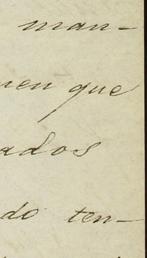 man-
uen que
ados
do ten-